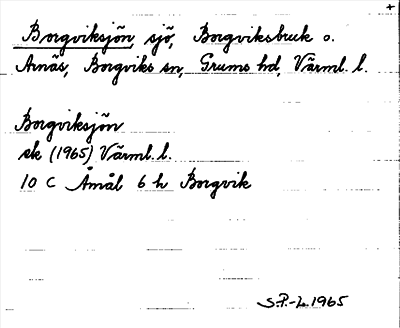 +
Borgviksjön, sjö, Borgviksbruk o.
Arnäs, Borgviks sn, Grums hd, Värml. l.
Borgviksjön
ek (1965) Värml. l.
10 C Åmål 6 h Borgvik
S.P.-L. 1965